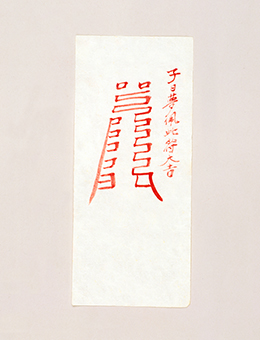 子日夢佩此符大吉